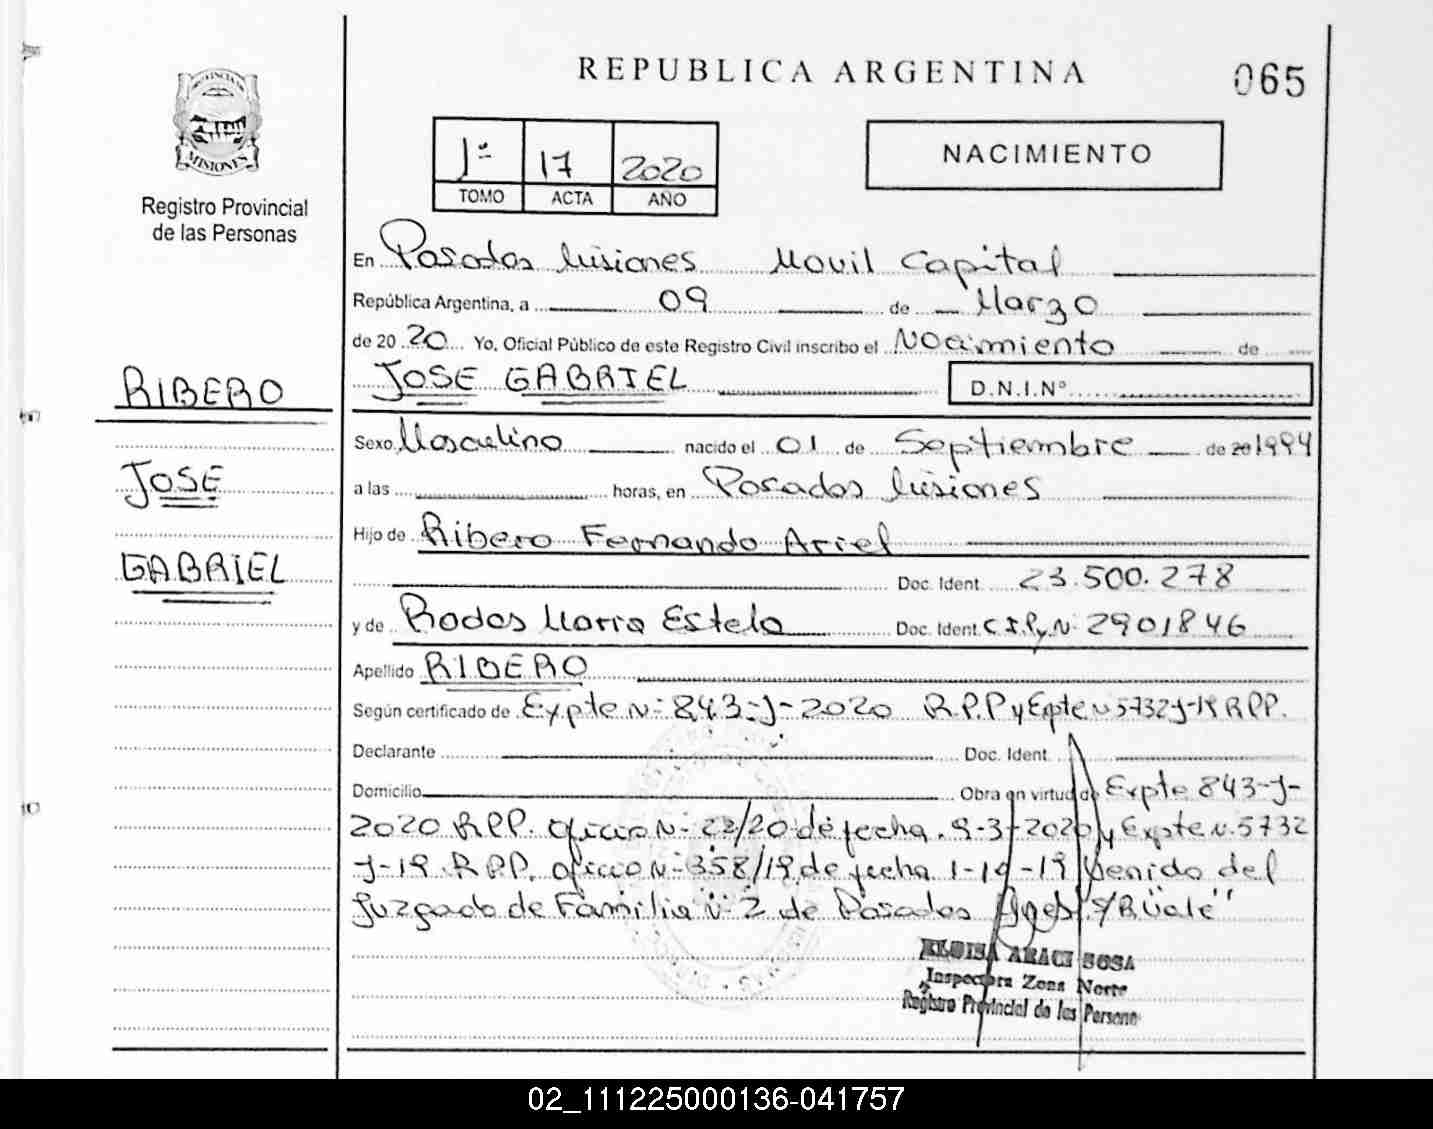 REPUBLICA ARGENTINA
065
PROVINCIA DE
MISIONES
Registro Provincial
de las Personas
1º 17 2020
TOMO ACTA AÑO
NACIMIENTO
En Posadas Misiones Movil Capital
República Argentina, a 09 de Marzo
de 20 20 Yo, Oficial Público de este Registro Civil inscribo el Nacimiento de
JOSE GABRIEL D.N.I.Nº
RIBERO
JOSE
GABRIEL
Sexo Masculino nacido el 01 de Septiembre de 20 1994
a las horas, en Posadas Misiones
Hijo de Ribero Fernando Ariel
Doc. Ident. 23.500.278
y de Rodas Maria Estela Doc. Ident. C.I.P.y.Nº 2901846
Apellido RIBERO
Según certificado de Expte Nº 843-J-2020 R.P.P y Expte Nº 5732 J-19 RPP.
Declarante Doc. Ident.
Domicilio Obra en virtud de Expte 843-J-
2020 R.P.P. oficio Nº 22/20 de fecha 9-3-2020 y Expte Nº 5732
J-19 R.P.P. oficio Nº 358/19 de fecha 1-10-19 venido del
Juzgado de Familia Nº 2 de Posadas
ELOISA ARACI SOSA
Inspectora Zona Norte
Registro Provincial de las Persona
02_111225000136-041757